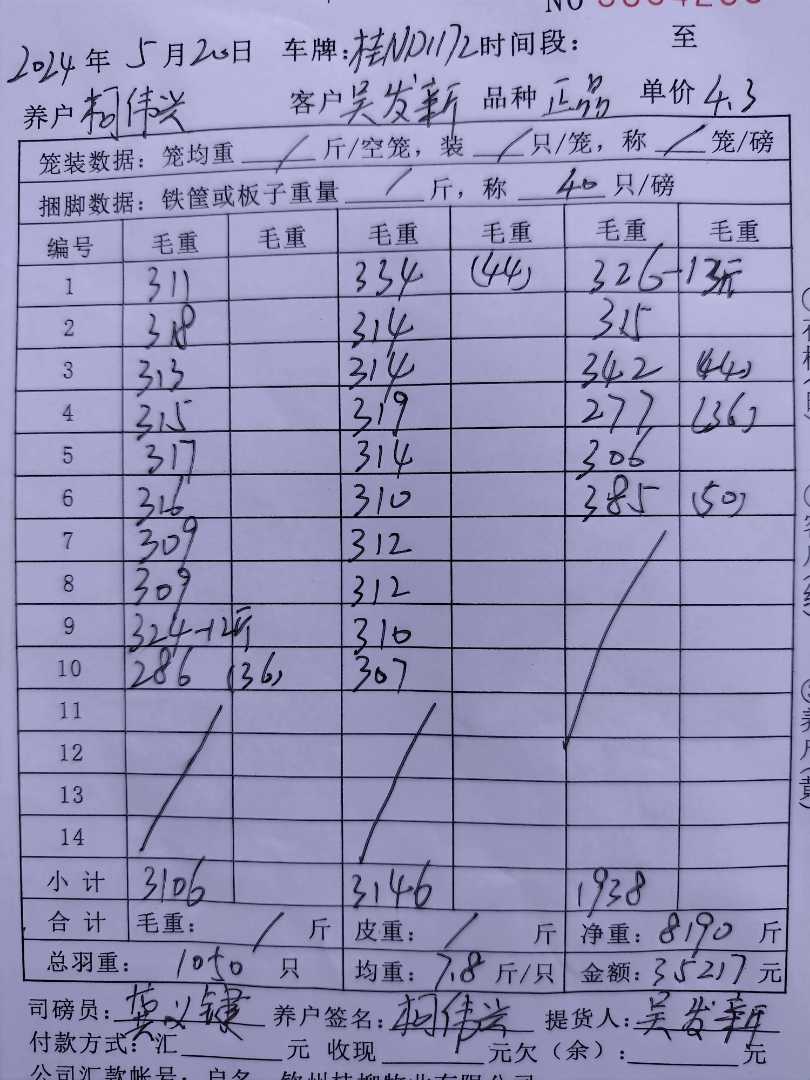 2024年5月20日 车牌:桂ND1172时间段: 至
养户 柯伟兴 客户 吴发新 品种 正品 单价 4.3
笼装数据: 笼均重 / 斤/空笼, 装 / 只/笼, 称 / 笼/磅
捆脚数据: 铁筐或板子重量 / 斤, 称 40 只/磅
编号 毛重 毛重 毛重 毛重 毛重 毛重
1 311 334 (44) 326-13斤
2 318 314 315
3 313 314 342 (44)
4 315 319 277 (36)
5 317 314 306
6 316 310 385 (50)
7 309 312
8 309 312
9 324-12斤 310
10 286 (36) 307
11
12
13
14
小计 3106 3146 1938
合计 毛重: / 斤 皮重: / 斤 净重: 8190 斤
总羽重: 1050 只 均重: 7.8 斤/只 金额: 35217 元
司磅员: 养户签名: 柯伟兴 提货人: 吴发新
付款方式: 汇 元 收现 元欠(余): 元
公司汇款帐号: 户名